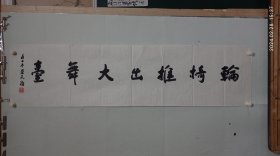 輪椅推出大舞臺
2024-02-28 15:37